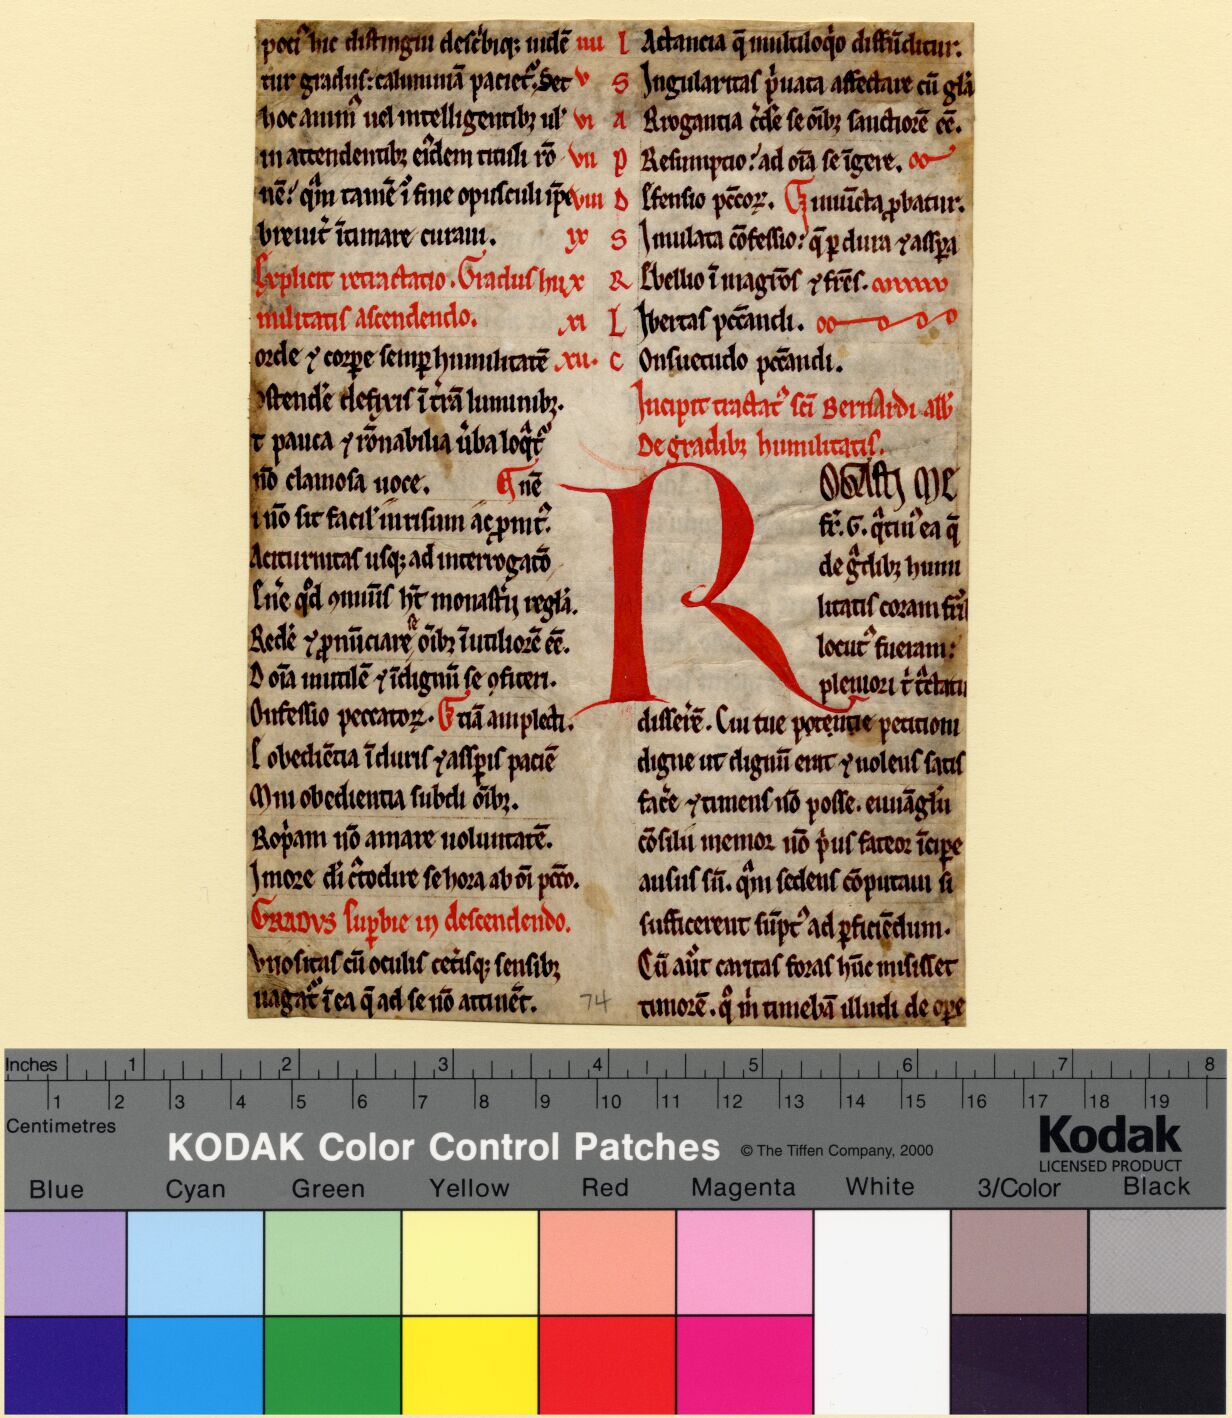 poci hic distingui describiq; uidē
tur gradus: calumniā paciet̉. Set
hoc animū uel intelligentibꝫ ul'
in attendentibꝫ eidem tituli rō
nē: qm̄ tamē ī fine opusculi ip̄e
breuit̉ ītimare curaui.
Explicit retractatio. Gradus hu
militatis ascendendo.
orde ⁊ corꝑe semꝑ humilitatē
ostende defixis ī t̉rā luminibꝫ.
t pauca ⁊ rōnabilia ūba loq̄t̉
nō clamosa uoce. nē
nō sit facil' in risum ac ꝓmt̉.
Aciturnitas usq; ad interrogatō
Ene qd ꝯmunis ht̄ monasterij regla.
Rede ⁊ ꝓnūciare se oībꝫ īutiliorē eē.
D oīa inutilē ⁊ īdignū se ꝯfiteri.
Onfessio peccatoꝝ. Etiā amplecti.
obediētia ī duris ⁊ asꝑis paciē
Mni obedientia subdi oībꝫ.
Ropriam nō amare uoluntatē.
Imore di c̉todire se hora ab oī pctō.
GRADVS suꝑbie in descendendo.
Vriositas cū oculis cet̉isq; sensibꝫ
uagat̉ ī ea q̄ ad se nō attinēt.
74
iiii I Actancia q̄ multiloqio diffūditur.
v S Ingularitas priuata affectare cū glā
vi A Rrogantia c̉de se oībꝫ sanctiorē eē.
vii P Resumptio: ad oīa se īgere.
viii D Efensio pccoꝝ. ꝓbatur.
ix S Imulata cōfessio: q̄ ꝑ dura ⁊ asꝑa
x R Ebellio ī magros ⁊ fres.
xi L Ibertas peccandi.
xii. C Onsuetudo peccandi.
Incipit tractat̉ sci Bernardi abb
De gradibꝫ humilitatis.
ROGASTI ME
fr. G. q̄tin̉ ea q̄
de g̉dibꝫ humi
litatis coram frī
locut̉ fueram:
pleniori t t̉ctatu
disserē. Cui tue potentie petitioni
digne ut dignū erat ⁊ uolens satis
face ⁊ timens nō posse. euuāglii
cōsilii memor nō p̉us fateor īcipe
ausus sū. qm sedens cōputaui si
sufficerent sūpt̉ ad ꝑficiēdum.
Cū aūt caritas foras hūc misisset
timorē. q m̉ timebā illudi de oꝑe
Inches 1 2 3 4 5 6 7 8
Centimetres 1 2 3 4 5 6 7 8 9 10 11 12 13 14 15 16 17 18 19
KODAK Color Control Patches © The Tiffen Company, 2000
Kodak
LICENSED PRODUCT
Blue Cyan Green Yellow Red Magenta White 3/Color Black